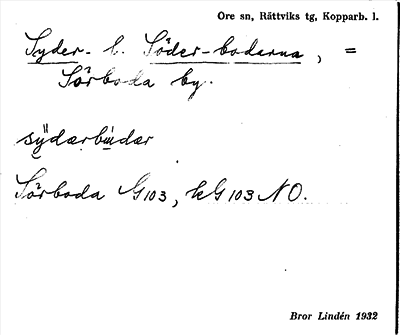 Ore sn, Rättviks tg, Kopparb. l.
Syder- l. Söder-bodarna, =
Sörboda by.
sÿdærbùdær
Sörboda G103, kG103NO.
Bror Lindén 1932